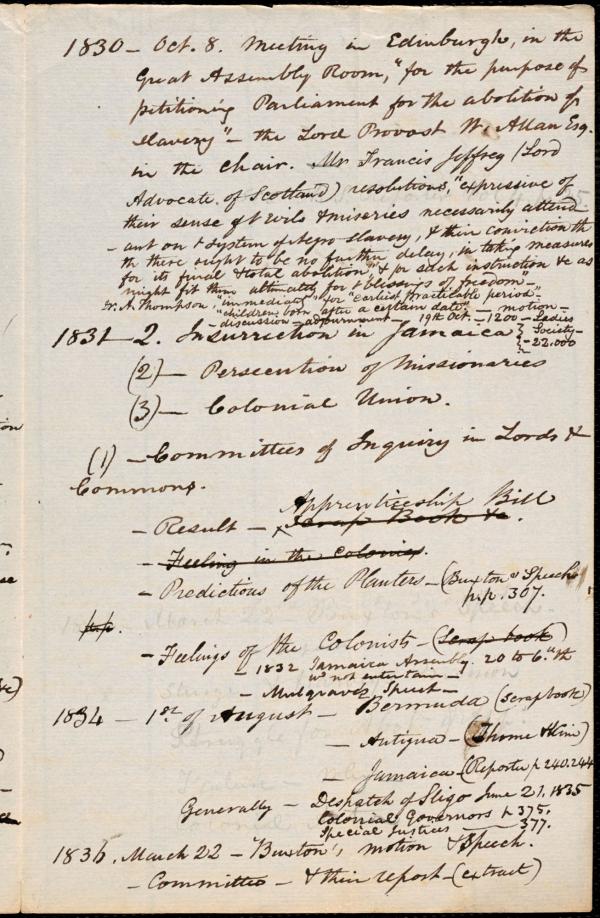 1830 — Oct. 8. Meeting in Edinburgh, in the
Great Assembly Room, "for the purpose of
petitioning Parliament for the abolition of
slavery" — the Lord Provost W. Allan Esq.
in the chair. Mr Francis Jeffrey (Lord
Advocate of Scotland) resolutions, "expressive of
their sense of & evils & miseries necessarily attend
- ant on & system of Negro Slavery, & their conviction th
th there ought to be no further delay, in taking measures
for its final & total abolition," & for such instruction &c as
might fit them ultimately for & blessings of freedom" —
Dr. A. Thompson "immediate" for "earliest practicable period" —
"children born after a certain date" — motion —
- discussion — adjournment — 19th Oct. — 1200 — Ladies
Society —
- 22.000
1831 — 2. Insurrection in Jamaica
(2) — Persecution of Missionaries
(3) — Colonial Union.
(1) — Committees of Inquiry in Lords &
Commons.
Apprenticeship Bill
- Result — Scrap Book &c.
- Feeling in the Colonies.
- Predictions of the Planters — (Buxton's Speech
p.p. 307.
p.p.
- Feelings of the Colonists — (Scrap book)
- 1832 Jamaica Assembly. 20 to 6. "th
wd not entertain —
- Mulgrave's Speech —
1834 — 1st of August — Bermuda (scrapbook)
- Antigua — (Thome & Kim)
- Jamaica — (Reporter p 240.244
Generally — Despatch of Sligo June 21. 1835
Colonial Governors p 375.
Special Justices — 377.
1836. March 22 — Buxton's motion & Speech.
- Committee — & their report — (extract)